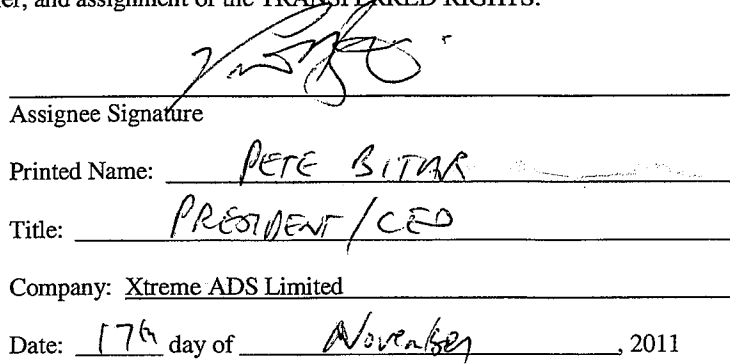 er, and assignment of the TRANSFERRED RIGHTS.
Assignee Signature
Printed Name: PETE BITAR
Title: PRESIDENT/CEO
Company: Xtreme ADS Limited
Date: 17th day of November, 2011